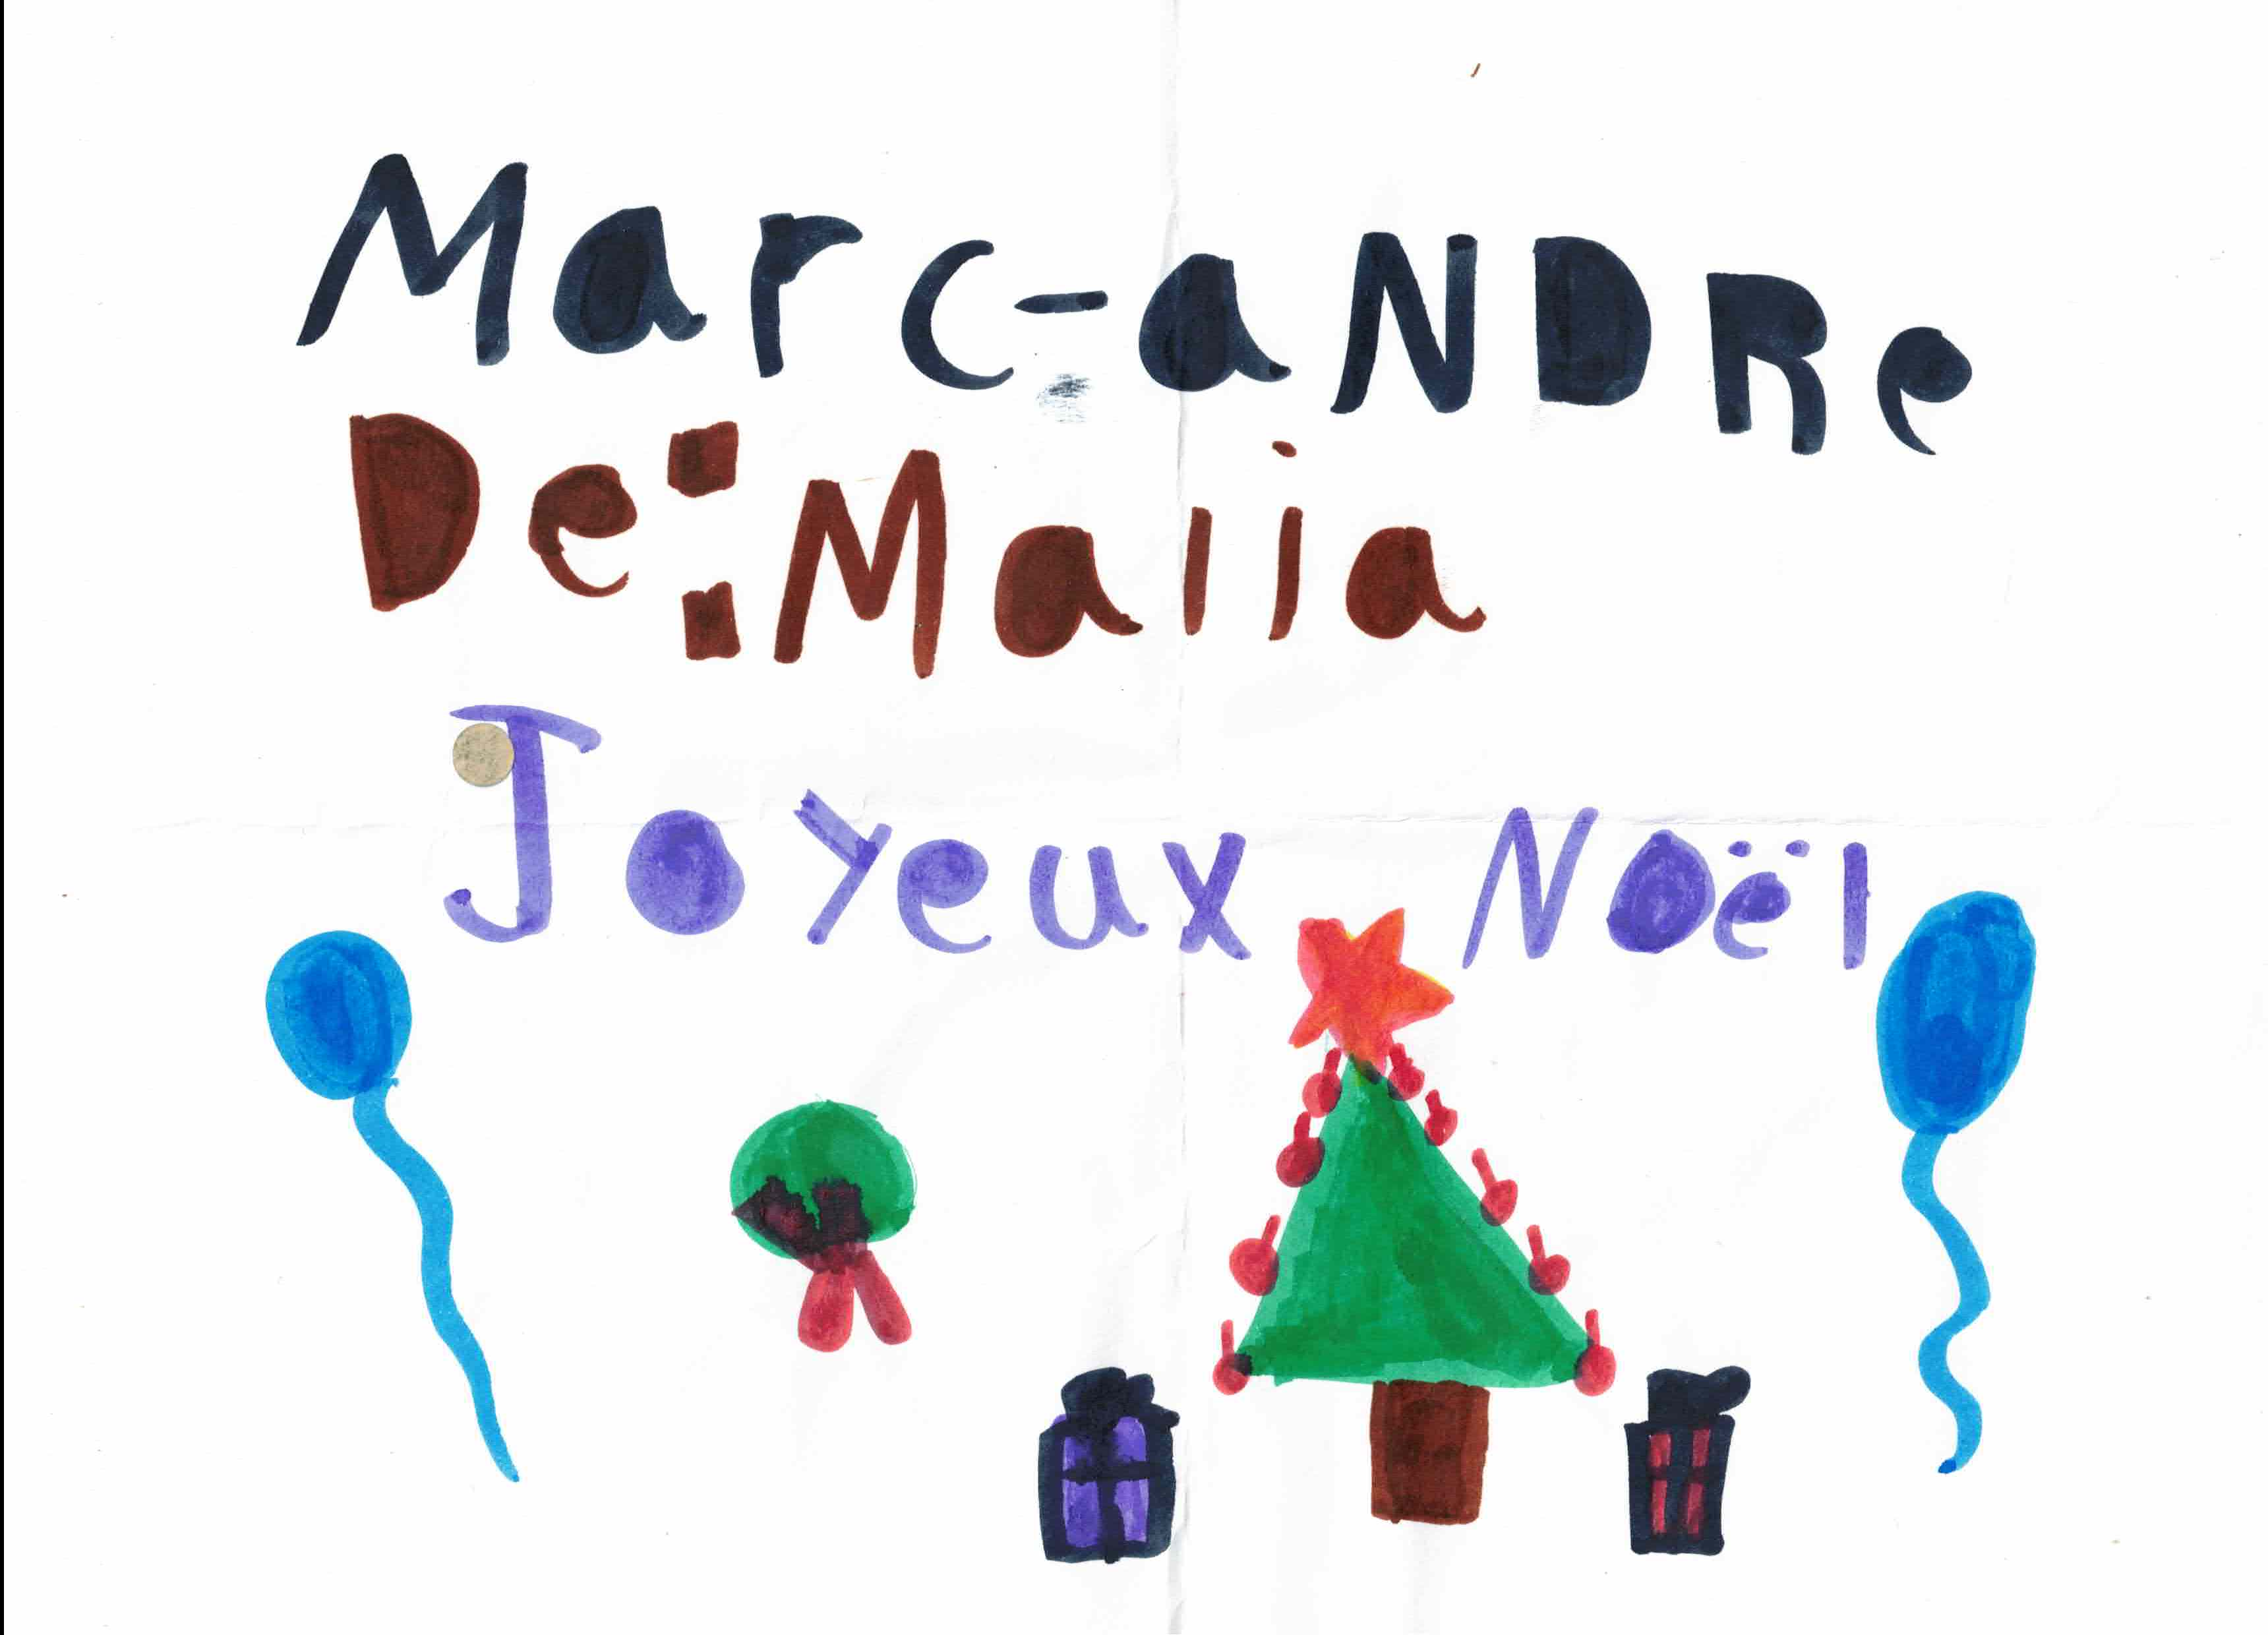 Marc-aNDRe
De:Malia
Joyeux Noël